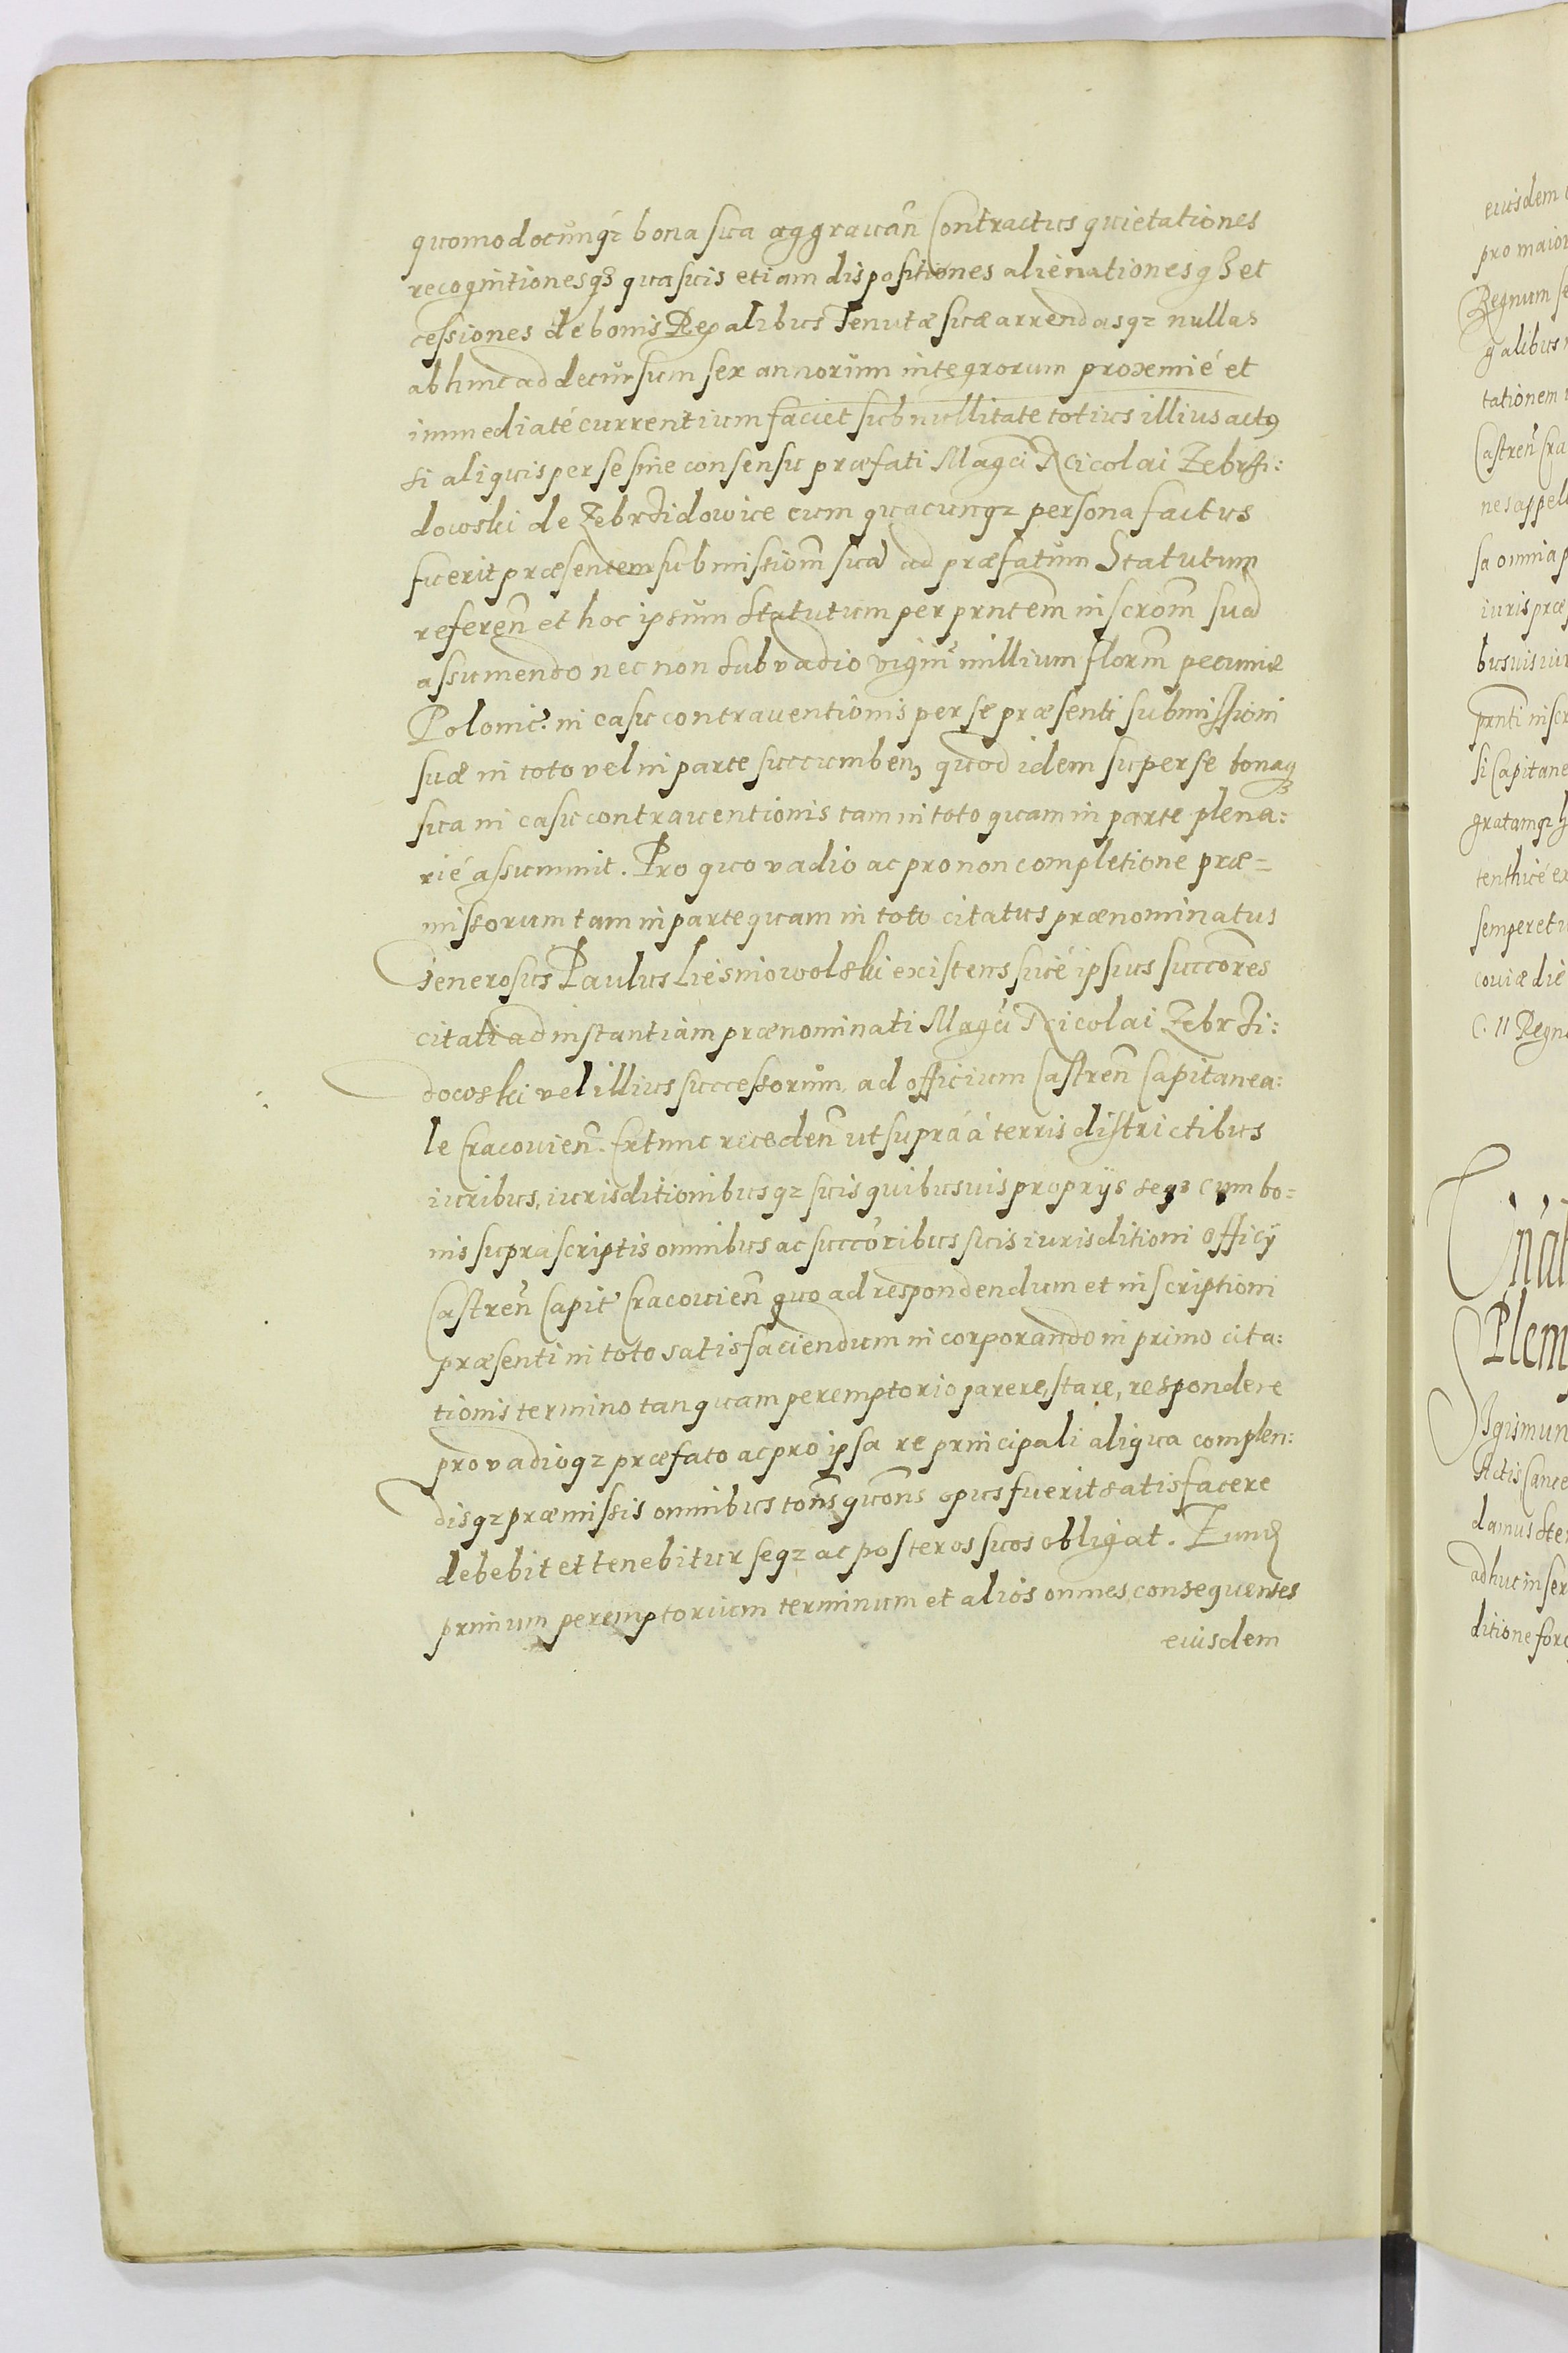 quomodocunqz bona sua aggrauan̄ Contractus quietationes
recognitionesqз quasuis etiam dispositiones alienationesqз et
cessiones de bonis Regalibus Tenutæ suæ arrendasqz nullas
abhinc ad decursum sex annorum integrorum proxemié et
immediaté currentium faciet sub nullitate totius illius actꝰ
si aliquis per se sine consensu præfati Magci Nicolai Zebrzi:
dowski de Zebrzidowice cum quacunqz persona factus
fuerit præsentem submissiom̄ suā ad præfatum Statutum
referen̄ et hoc ipsum Statutum per prntem̄ inscrom̄ suā
assumendo nec non sub vadio vigin̄ millium florm̄ pecuniæ
Polonic̄. in casu contrauentionis per se præsenti submissioni
suæ in toto vel in parte succumben̄, quod idem super se bonaqз
sua in casu contrauentionis tam in toto quam in parte plena:
rié assummit. Pro quo vadio ac pro non completione præ=
missorum tam in parte quam in toto citatus prænominatus
Generosus Paulus Liesniowolski existens siué ipsius succores
citati ad instantiam prænominati Magci Nicolai Zebrzi:
dowski vel illius successorum, ad officium Castren̄ Capitanea:
le Cracouien̄. Extunc receden̄ ut supra á terris districtibus
iuribus, iurisditionibusqz suis quibusuis proprijs seqз cum bo=
nis suprascriptis omnibus ac succoribus suis iurisditioni officÿ
Castren̄ Capit̄ Cracouien̄ quo ad respondendum et inscriptioni
præsenti in toto satisfaciendum incorporando in primo cita:
tionis termino tanquam peremptorio parere, stare, respondere
pro vadioqz præfato ac pro ipsa re principali aliqua complen:
disqz præmissis omnibus tons̄ quons̄ opus fuerit satisfacere
debebit et tenebitur seqz ac posteros suos obligat.
primum peremptorium terminum et alios omnes consequentes
eiusdem
eiusdem
pro maior
Regnum se
galibus
tationem
Castren̄ Cra
nes appell
sa omnia p
iuris præ
busuis iur
prnti inscr
si Capitane
gratamqz h
tenthicé ex
semper et
couiæ die
C. II Regn
Plem
Actis Cance
adhuc inser
ditione foro